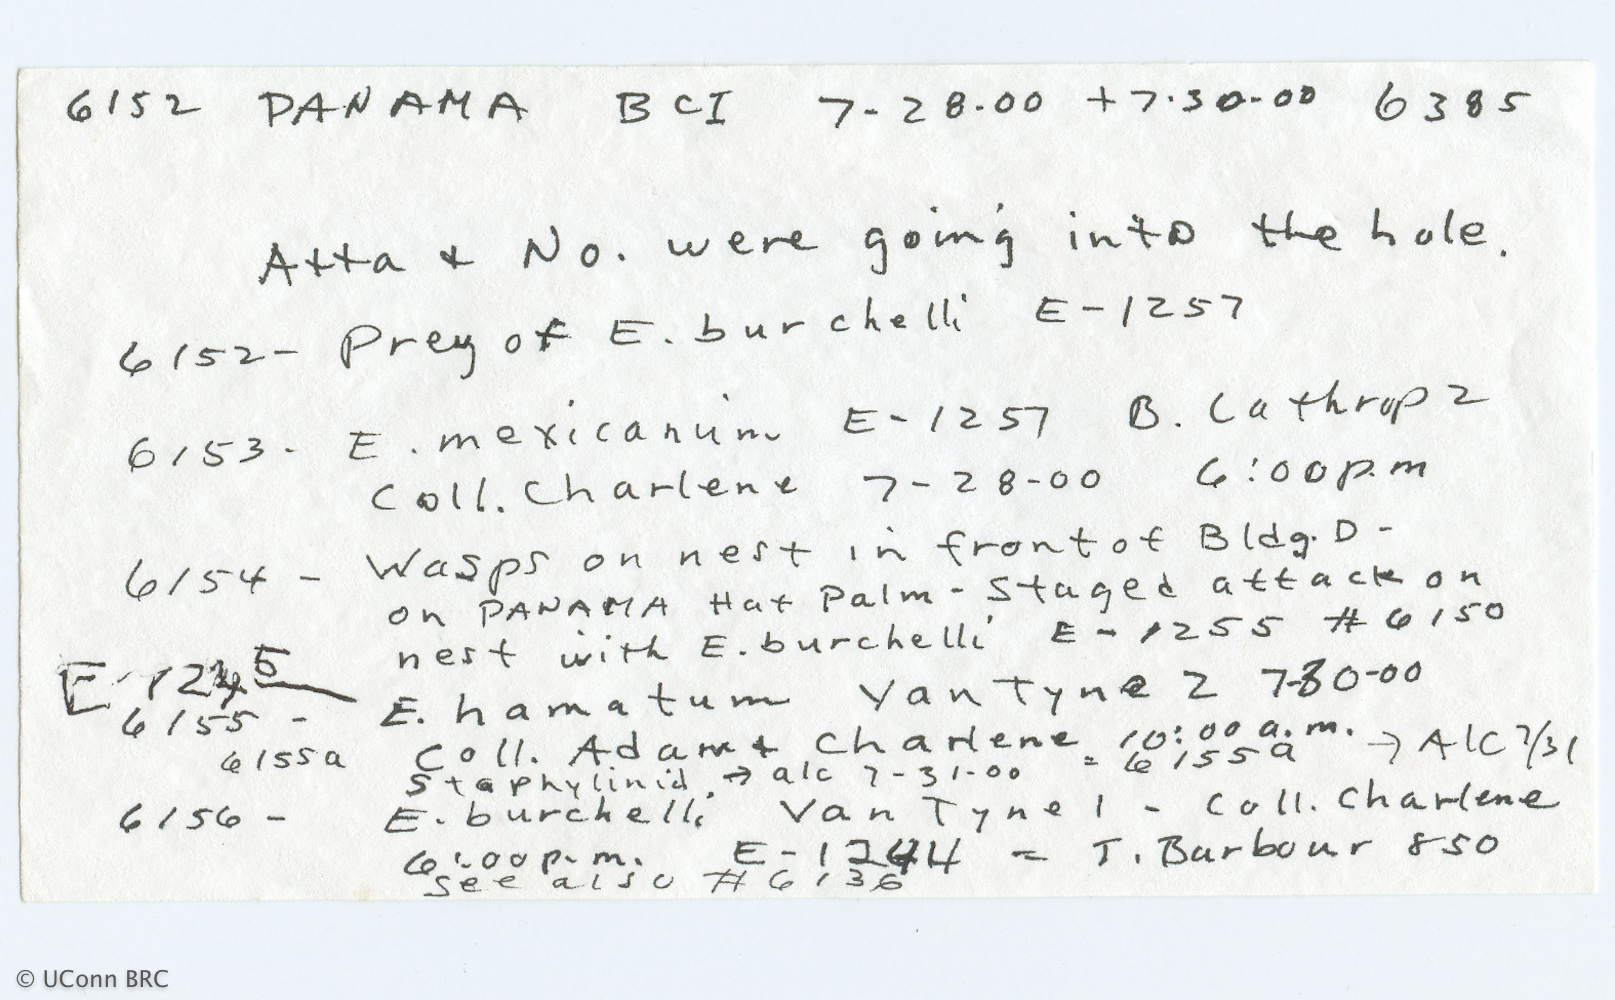 6152 PANAMA BCI 7-28-00 + 7-30-00 6385
Atta & No. were going into the hole.
6152- Prey of E. burchelli E-1257
6153- E. mexicanum E-1257 B. Lathrop 2
Coll. Charlene 7-28-00 6:00 p.m
6154- Wasps on nest in front of Bldg. D-
on PANAMA Hat Palm - Staged attack on
nest with E. burchelli E-1255 # 6150
E-1245
6155- E. hamatum Van Tyne 2 7-30-00
6155a Coll. Adam & Charlene 10:00 a.m.
Staphylinid. → alc 7-31-00 = 6155a → AlC 7/31
6156- E. burchelli Van Tyne 1 - Coll. Charlene
6:00 p.m. E-1244 = T. Barbour 850
See also # 6136
© UConn BRC